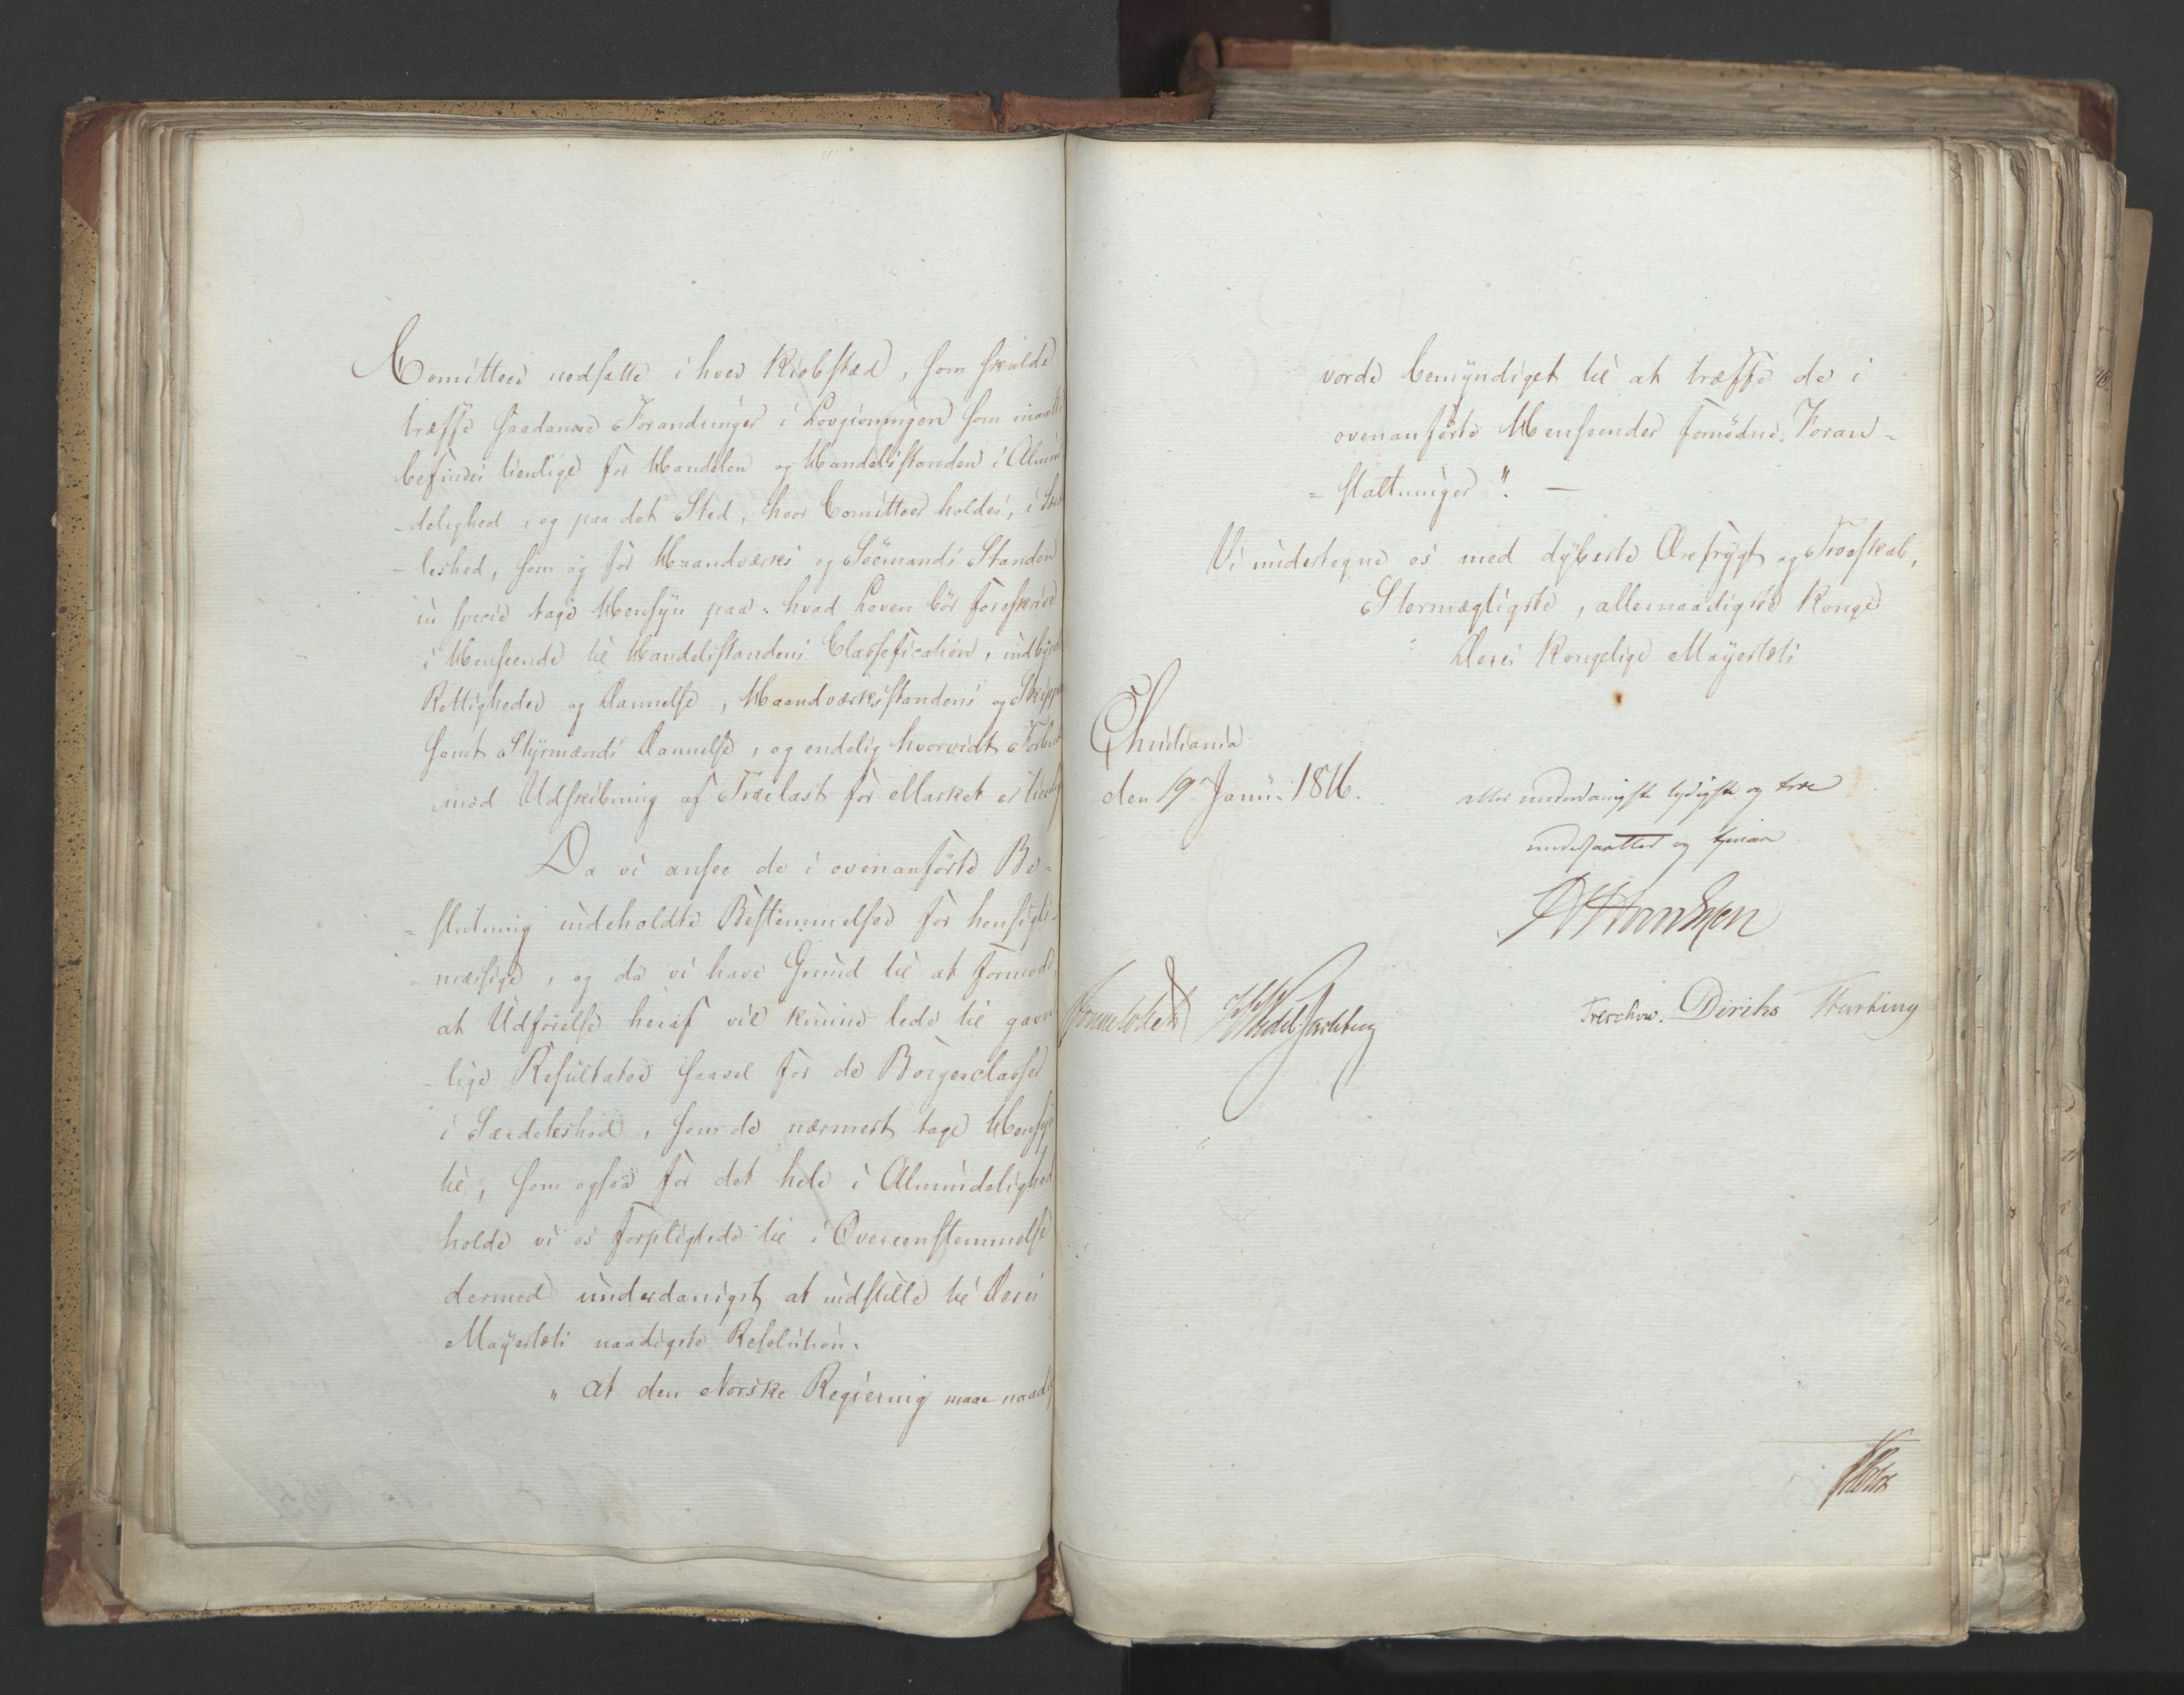 Comitteer nedsatte i hver Kiøbstæd, som skulde
træffe saadanne Forandringer i Lovgivningen som maatte
befindes tienlige for Handelen og Handelsstanden i Almin
-delighed, og paa det Sted, hvor Comitteer holdes, i Sær
-leshed, som og for Haandværks og Söemands Standen
in specie tage Hensyn paa: hvad Loven bör foreskrive
i Henseende til Handelsstandens Classefication, indbyrdes
Rettigheder og Dannelse, Haandværksstandens og Skipper
samt Styrmænds Dannelse, og endelig hvorvidt Forbud
mod Udskibning af Trælast før Marked er tienlig
Da vi ansee de i ovenanførte Be-
-slutning indeholdte Bestemmelser for hensigts-
-mæssige, og da vi have Grund til at formode
at Udførelse heraf vil kunne lede til gavn
-lige Resultater saavel for de Borgerclasser
i Særdeleshed, som de nærmest tage Hensyn
til, som ogsaa for det hele i Almindelighed
holde vi os forpligtede til i Overeensstemmelse
dermed underdanigst at indstille til Deres
Mayestæts naadigste Resolution:
"at den Norske Regiering maae naadigst
vorde bemyndiget til at træffe de i
ovenanførte Henseender fornødne Foran-
=staltninger". —
Vi undertegne os med dybeste Ærefrygt og Troeskab,
Stormægtigste, allernaadigste Konge
Deres Kongelige Mayestæts
Christiania
den 19 Janu: 1816.
aller underdanigste lydigste og troe
undersaatter og tjenere
Treschow. Diriks
Wedel Jarlsberg